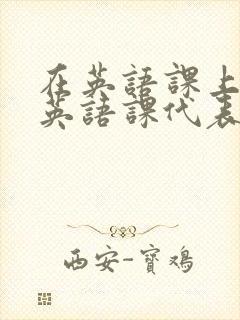 在英語課上
英語課代表
西安-寶鴻